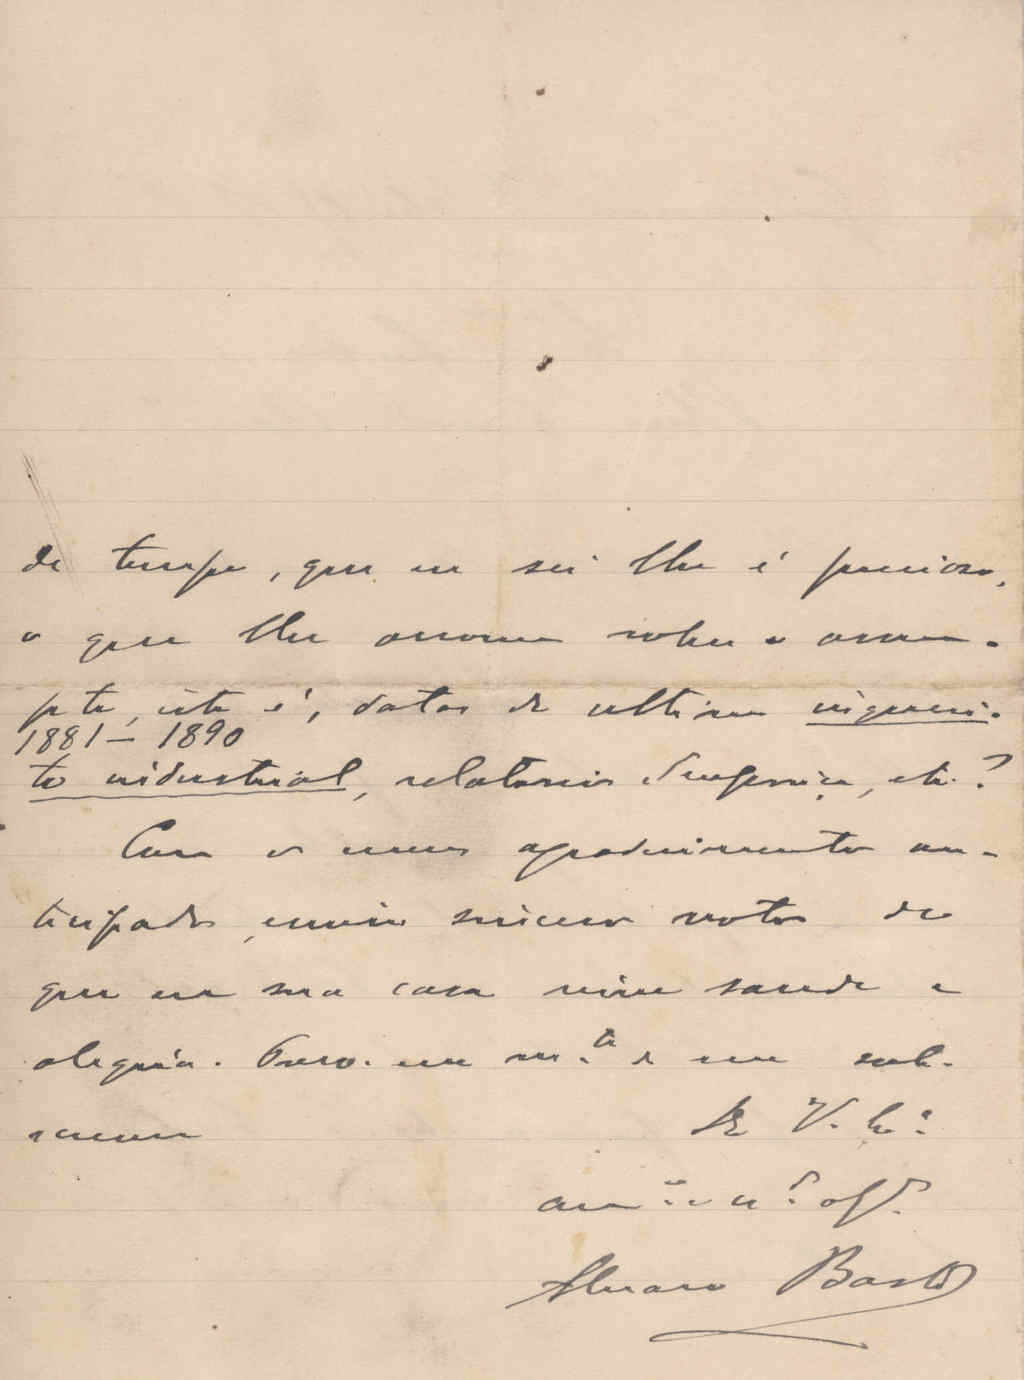 de tempo, que eu sei lhe é precioso,
o que lhe ocorrer sobre o assum-
pto, isto é, datas do ultimo inqueri-
1881 — 1890
to industrial, relatorio d'emprezas, etc.?
Com o meu agradecimento an-
ticipado, envio sinceros votos de
que em sua casa reine saude e
alegria. Creio. me m.to e me sub-
screvo
De V. Ex.ª
am.º e cr.º obg.º
Alvaro Basto